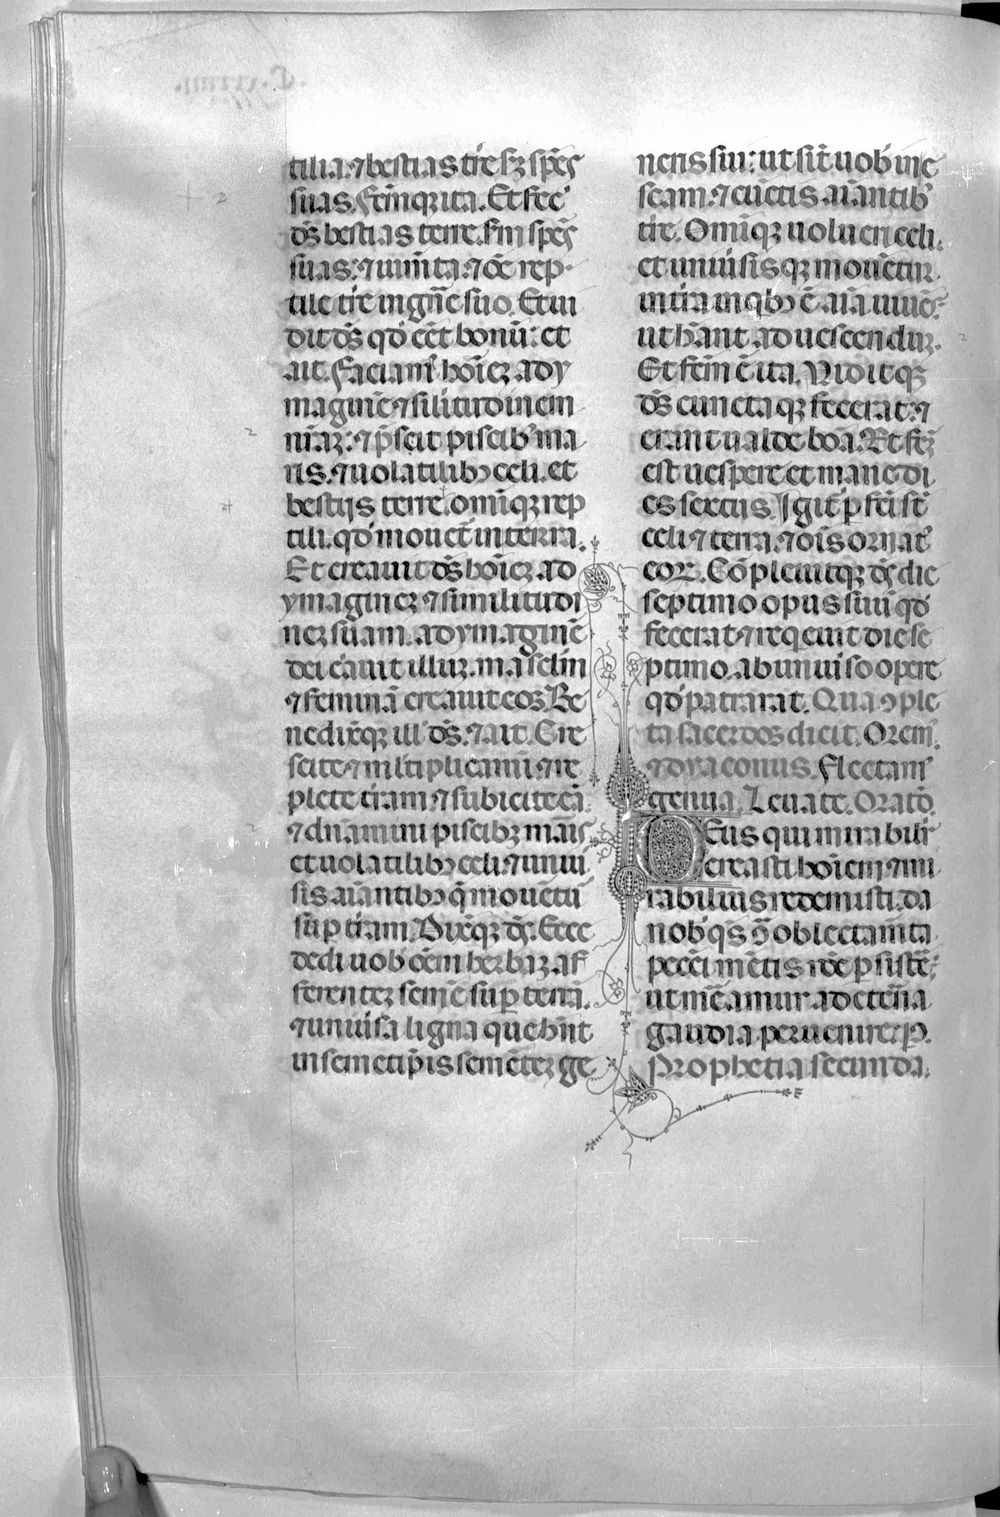 tilia. ⁊ bestias tr̄e scd̄ꝫ sp̄es
suas. Fc̄m q̄ꝫ ita. Et fec̄
dꝰs bestias terre. scd̄m sp̄es
suas: ⁊ iumīta. ⁊ ōe rep
tile tr̄e in gn̄e suo. Et ui
dit dꝰs qd̓ eēt bonū: et
ait. Faciamꝰ hoīeꝫ ad y
maginē ⁊ silitudinem
nr̄aꝫ: ⁊ p̄sit piscibꝰ ma
ris. ⁊ uolatilibꝫ celi. et
bestijs terre. omīqꝫ rep
tili. qd̓ mouet̄ in terra.
Et creauit dꝰs hoīeꝫ ad
ymagineꝫ ⁊ similitudi
neꝫ suam. ad ymaginē
dei c̄auit illuꝫ. masculin
⁊ feminā creauit eos. Be
nedixqꝫ ill̓ dꝰs. ⁊ ait. Cre
scite ⁊ ml̓tiplicamī. ⁊ re
plete tr̄am. ⁊ subicite eā.
⁊ dn̄amini piscibꝫ maris
et uolatilibꝫ celi. ⁊ uniū
sis aīantibꝫ q̄ mouētū
suꝑ tr̄am. Dixqꝫ dꝰs. Ecce
dedi uob̓ ōem herbaꝫ af
ferenteꝫ semē suꝑ terrā.
⁊ uniūsa ligna que hn̄t
in semetip̄is semēteꝫ ge
neris sui: ut sīt uob̓ in e
scam. ⁊ cūctis aīantibꝰ
tr̄e. Omīqꝫ uolucri celi.
et uniūsis qꝫ mouētur
in tr̄a in qbꝫ ē aīa uiuēs.
ut hēant ad uescenduꝫ.
Et fc̄m ē ita. Viditqꝫ
dꝰs cuncta qꝫ fecerat. ⁊
erant ualde boā. Et fc̄ꝫ
est uespere et mane di
es sextus. Igit̄ ꝑfc̄i st̄
celi ⁊ terra. ⁊ oīs ornatꝰ
eoꝝ. Cōpleuitqꝫ dꝰs die
septimo opus suū qd̓
fecerat ⁊ reqeuit die se
ptimo ab uniūso opere
qd̓ patrarat. Qua ꝯple
ta sacerdos dicit. Oremꝰ.
⁊ dyaconus. Flectamꝰ
genua. Leuate. Oratō.
Deus qui mirabilit̄
creasti hoīem ⁊ mi
rabilius redemisti. da
nob̓ qs̄ ꝯ oblectamīta
peccati mētis rōe ꝑsistē:
ut mereamur ad etn̄a
gaudia peruenire. P.
Prophetia secunda.